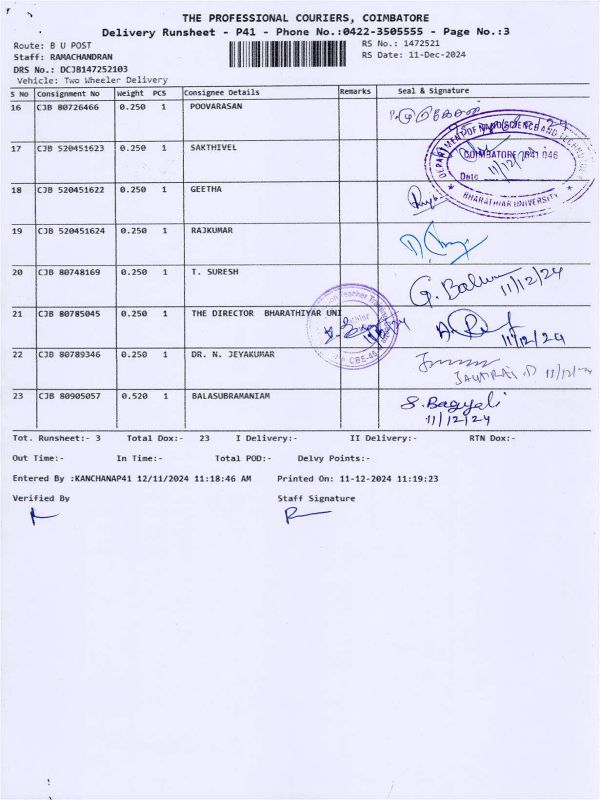 THE PROFESSIONAL COURIERS, COIMBATORE
Delivery Runsheet - P41 - Phone No.:0422-3505555 - Page No.:3
Route: B U POST RS No.: 1472521
Staff: RAMACHANDRAN RS Date: 11-Dec-2024
DRS No.: DCJB147252103
Vehicle: Two Wheeler Delivery
S No Consignment No Weight PCS Consignee Details Remarks Seal & Signature
16 CJB 80726466 0.250 1 POOVARASAN
17 CJB 520451623 0.250 1 SAKTHIVEL
DEPARTMENT OF NANOSCIENCE AND TECHNOLOGY
COIMBATORE 641 046
Date 11/12/24
BHARATHIAR UNIVERSITY
18 CJB 520451622 0.250 1 GEETHA
19 CJB 520451624 0.250 1 RAJKUMAR
20 CJB 80748169 0.250 1 T. SURESH 11/12/24
21 CJB 80785045 0.250 1 THE DIRECTOR BHARATHIYAR UNI 11/12/24
CBE-46
22 CJB 80789346 0.250 1 DR. N. JEYAKUMAR 11/12/24
23 CJB 80905057 0.520 1 BALASUBRAMANIAM S. Bagyali
11/12/24
Tot. Runsheet:- 3 Total Dox:- 23 I Delivery:- II Delivery:- RTN Dox:-
Out Time:- In Time:- Total POD:- Delvy Points:-
Entered By :KANCHANAP41 12/11/2024 11:18:46 AM Printed On: 11-12-2024 11:19:23
Verified By Staff Signature